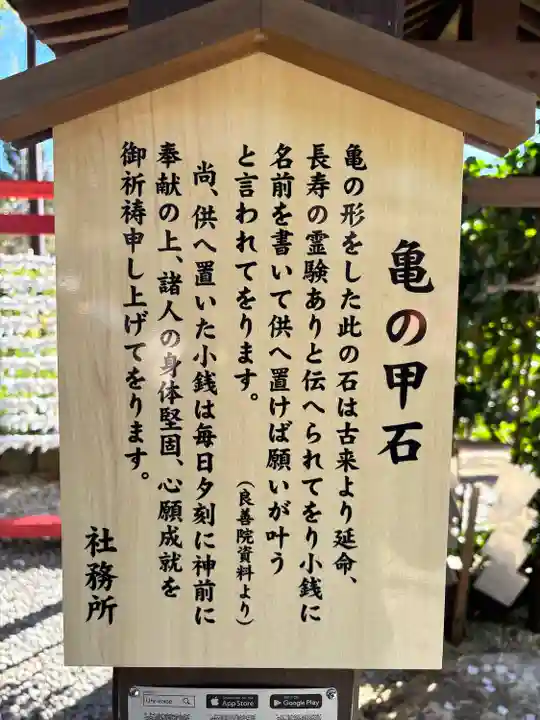 亀の甲石
亀の形をした此の石は古来より延命、
長寿の霊験ありと伝へられてをり小銭に
名前を書いて供へ置けば願いが叶う
と言われてをります。
（良善院資料より）
尚、供へ置いた小銭は毎日夕刻に神前に
奉献の上、諸人の身体堅固、心願成就を
御祈祷申し上げてをります。
社務所
App Store
Google Play